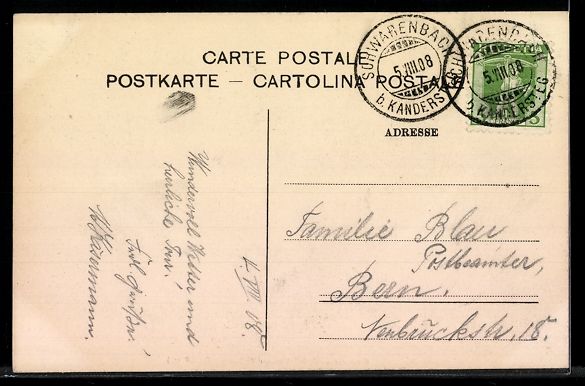 CARTE POSTALE
POSTKARTE — CARTOLINA POSTALE
SCHWARENBACH
5.VIII.08
b. KANDERSTEG
SCHWARENBACH
5.VIII.08
b. KANDERSTEG
ADRESSE
Familie Blau
Postbeamter,
Bern.
Neubrückstr. 18.
4. VIII. 08.
Wundervoll Wetter und
herrliche Tour!
Frdl. Grüße!